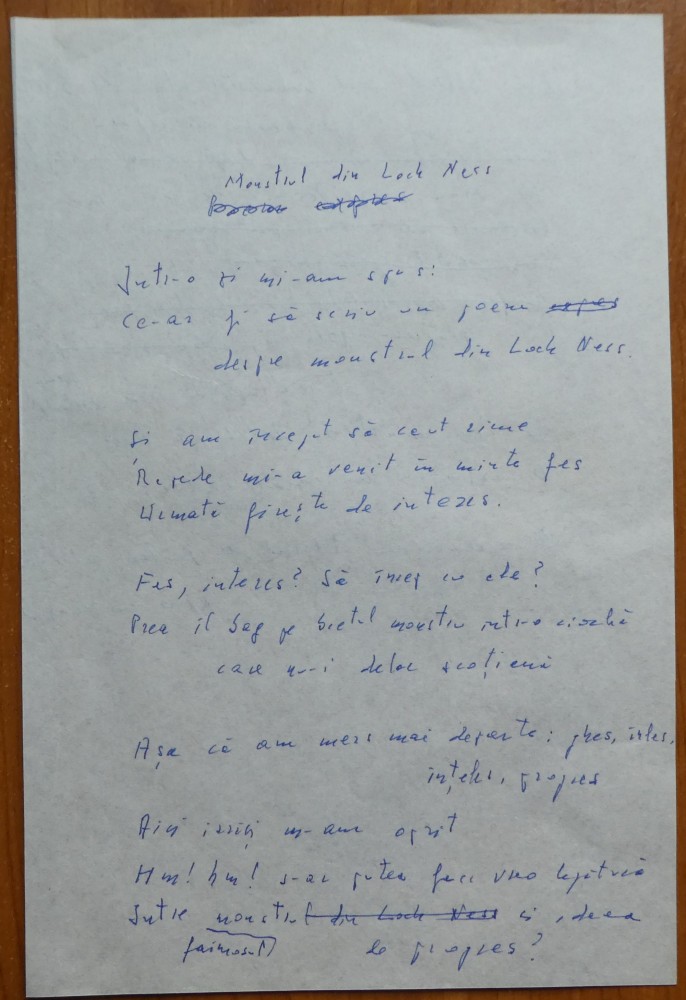 Monstrul din Loch Ness
Într-o zi mi-am spus:
Ce-ar fi să scriu un poem
despre monstrul din Loch Ness.
Și am început să caut rime
Repede mi-a venit în minte fes
Urmată firește de interes.
Fes, interes? Să încep cu ele?
Prea îl bag pe bietul monstru într-o
care nu-i deloc scoțiană
Așa că am mers mai departe: ghes, ales,
înțeles, progres
Aici m-am oprit
Hm! hm! s-ar putea face vreo legătură
Între monstrul din Loch Ness și ideea
faimosul de progres?